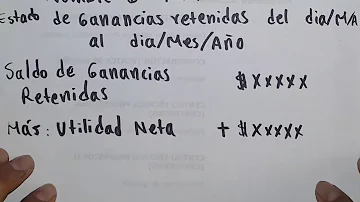 Estado de Ganancias retenidas del dia/M/A
al dia/Mes/Año
Saldo de Ganancias $XXXXX
Retenidas
Más: Utilidad Neta + $XXXXX